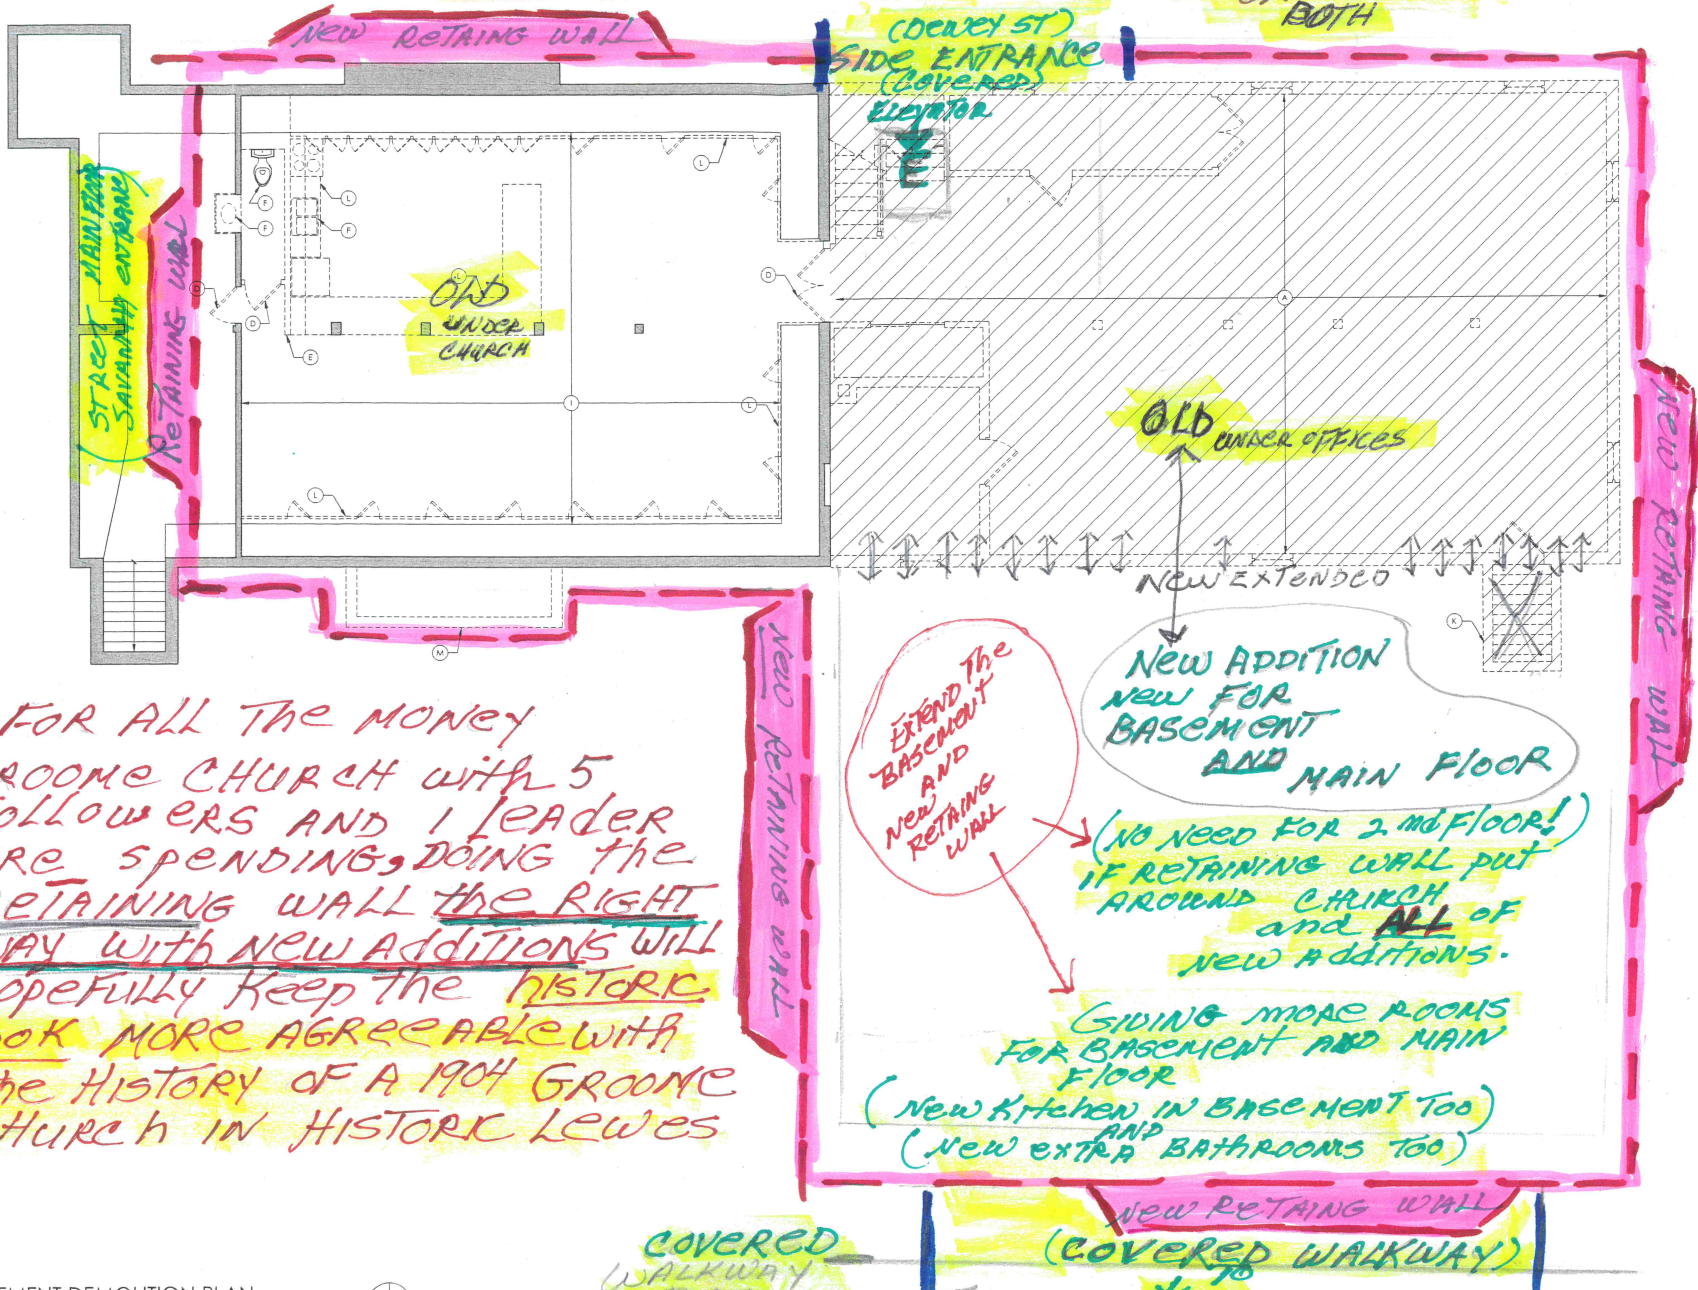 BOTH
NEW RETAING WALL
(DEWEY ST)
SIDE ENTRANCE
(COVERED)
ELEVATOR
E
STREET MAIN FLOOR
(SAVANNAH ENTRANC
RETAINING WALL
F
F
L
F
L
D
D
E
L
OLD
UNDER
CHURCH
D
I
L
L
A
OLD UNDER OFFICES
NEW RETAING WALL
NEW EXTENDED
K
M
NEW RETAINING WALL
EXTEND The
BASEMENT
AND
NEW
RETAING
WALL
NEW ADDITION
NEW FOR
BASEMENT
AND
MAIN FLOOR
(NO NEED FOR 2 nd FLOOR!)
IF RETAINING WALL PUT
AROUND CHURCH
and ALL OF
NEW Additions.
GIVING MORE ROOMS
FOR BASEMENT AND MAIN
FLOOR
(NEW KITCHEN IN BASEMENT TOO)
AND
(NEW EXTRA BATHROOMS TOO)
FOR ALL The MONEY
ROOME CHURCH with 5
OLLOWERS AND 1 LEADER
RE SPENDING, DOING The
ETAINING WALL the RIGHT
AY with NEW AddITIONS WILL
OPEFULLY KEEP The HISTORIC
OOK MORE AGREEABLE with
he HISTORY OF A 1904 GROOME
HURCH IN HISTORIC LEWES
NEW RETAING WALL
COVERED
WALKWAY
(COVERED WALKWAY)
TO
EMENT DEMOLITION PLAN